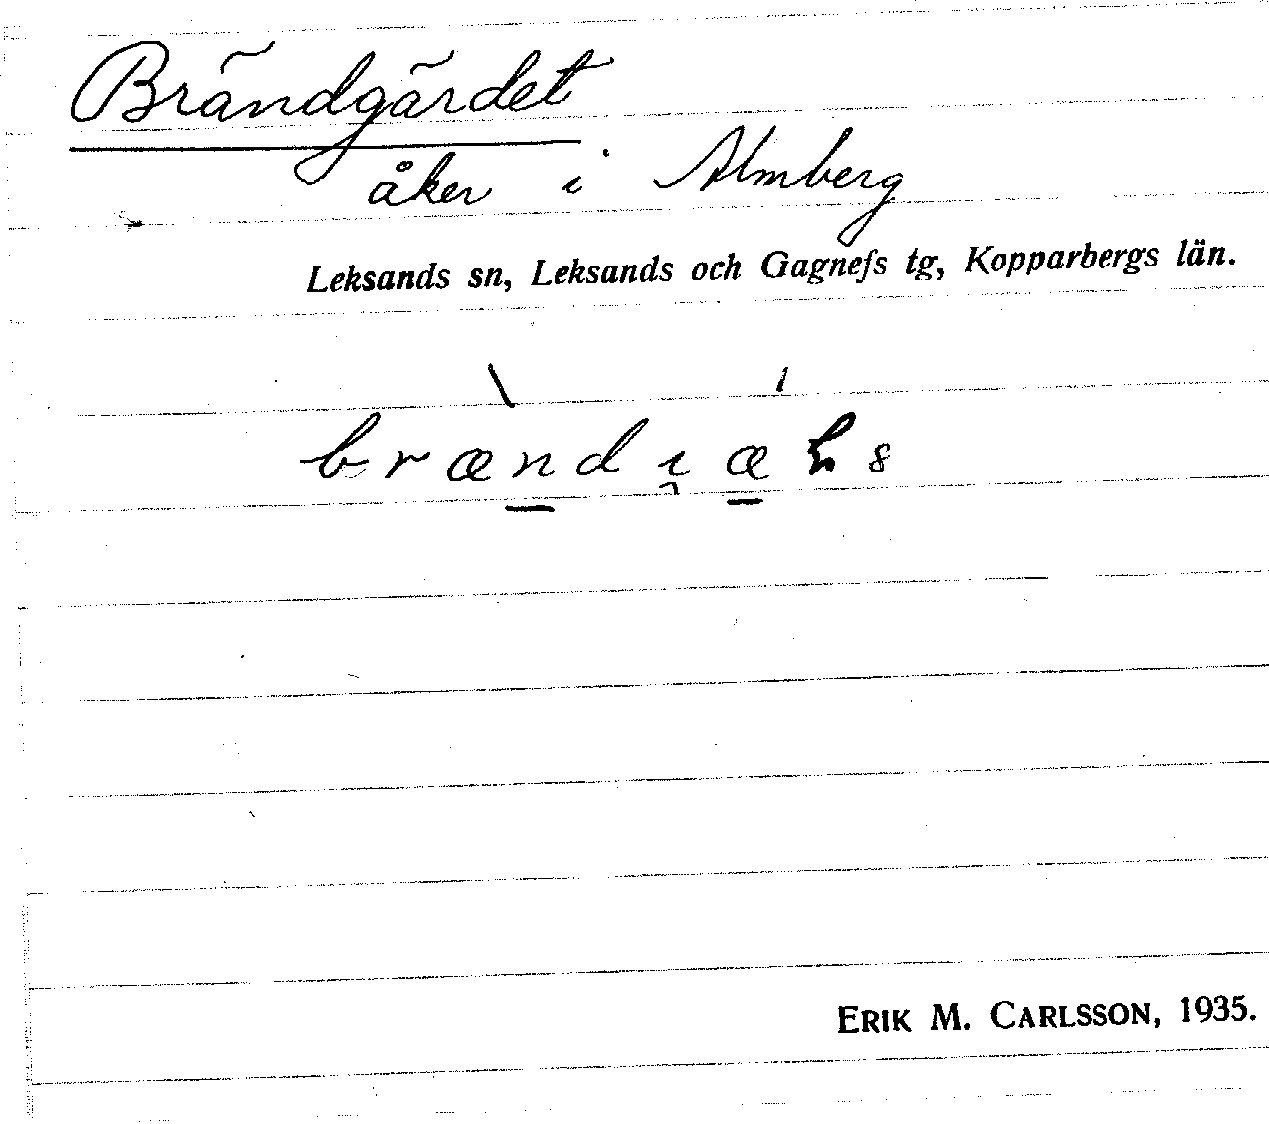 Brändgärdet
åker i Almberg
Leksands sn, Leksands och Gagnefs tg, Kopparbergs län.
ERIK M. CARLSSON, 1935.